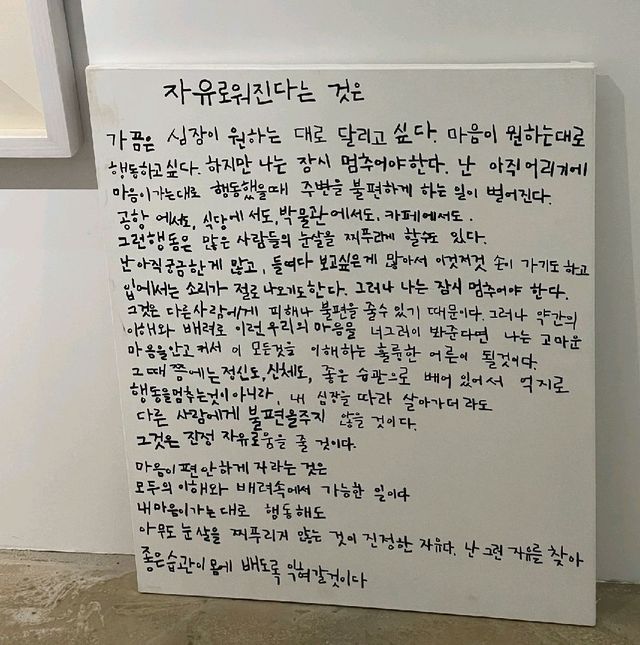 자유로워진다는 것은
가끔은 심장이 원하는 대로 달리고 싶다. 마음이 원하는대로
행동하고싶다. 하지만 나는 잠시 멈추어야한다. 난 아직어리기에
마음이가는대로 행동했을때 주변을 불편하게 하는 일이 벌어진다.
공항에서도, 식당에서도, 박물관에서도. 카페에서도.
그런행동은 많은 사람들의 눈살을 찌푸리게 할수도 있다.
난 아직궁금한게 많고, 들여다 보고싶은게 많아서 이것저것 손이 가기도 하고
입에서는 소리가 절로 나오기도한다. 그러나 나는 잠시 멈추어야 한다.
그것은 다른사람에게 피해나 불편을 줄수 있기 때문이다. 그러나 약간의
이해와 배려로 이런 우리의 마음을 너그러이 봐준다면 나는 고마운
마음을안고커서 이 모든것을 이해하는 훌륭한 어른이 될것이다.
그때쯤에는정신도,신체도, 좋은 습관으로 배어 있어서 억지로
행동을멈추는것이 아니라, 내 심장을 따라 살아가더라도
다른 사람에게 불편을주지 않을 것이다.
그것은 진정 자유로움을 줄 것이다.
마음이 편안하게 자라는 것은
모두의 이해와 배려속에서 가능한 일이다
내마음이가는대로 행동해도
아무도 눈살을 찌푸리지 않는 것이 진정한 자유다. 난 그런 자유를 찾아
좋은습관이 몸에 배도록 익혀갈것이다